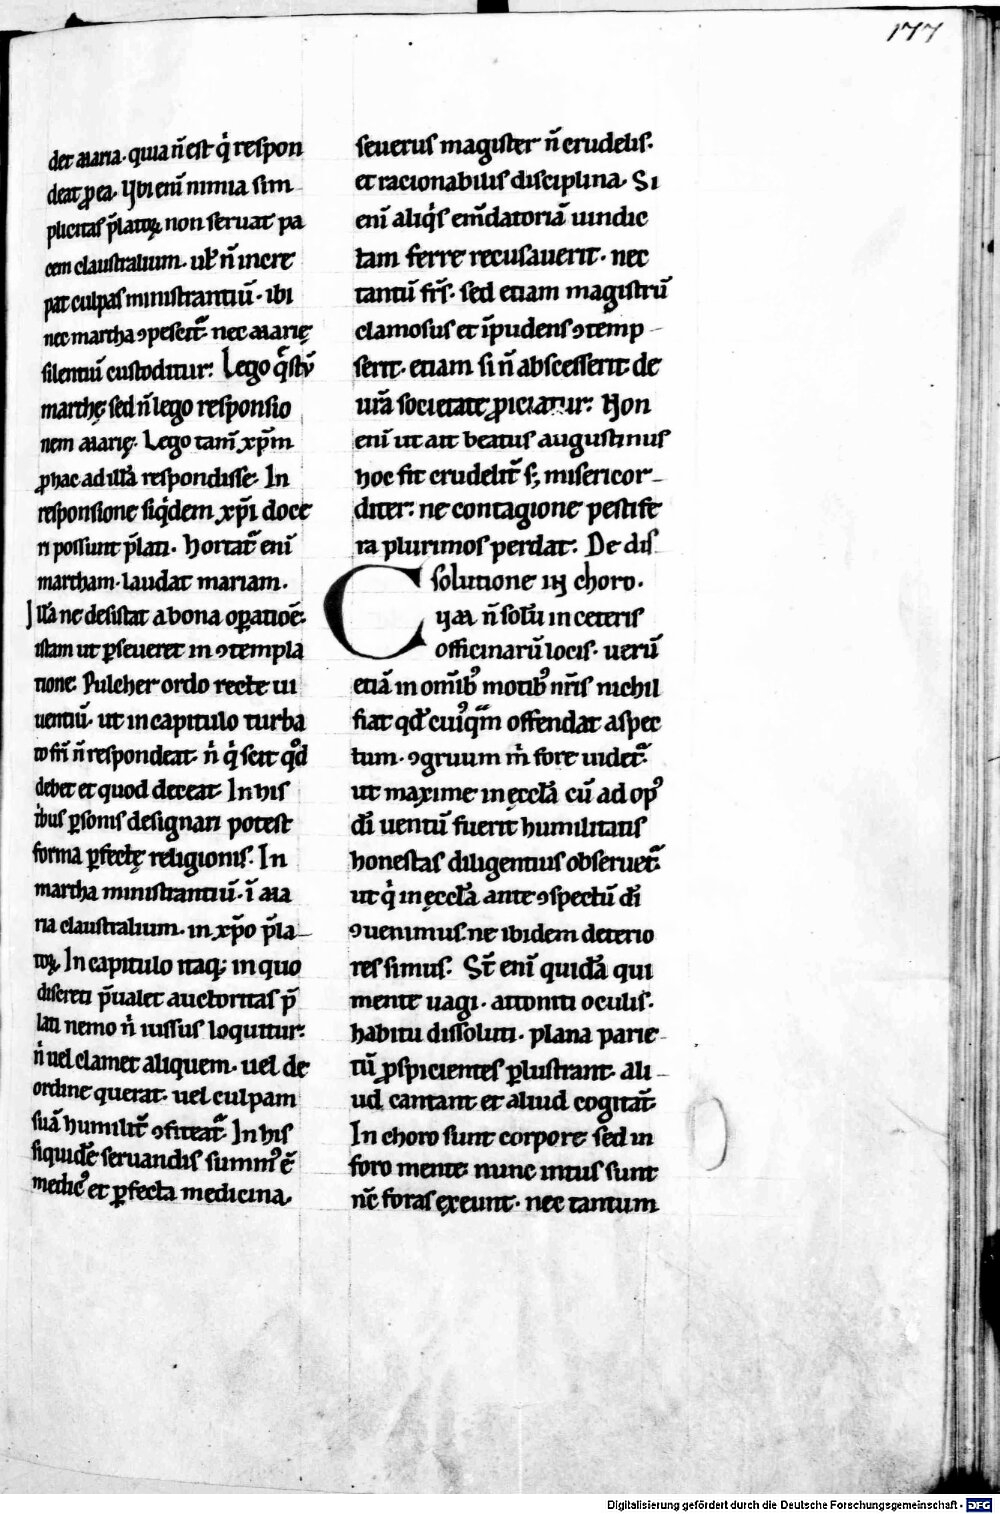 177
det maria. quia n̄ est q̇ respon
deat ꝓ ea. Ubi eni̅ nimia sim
plicitas p̄latoꝝ non seruat pa
cem claustralium. ul̵ n̄ incre
pat culpas ministrantiu̅. ibi
nec martha ꝯpescit᷑. nec marię
silentiu̅ custoditur. Lego q̄stu̅
marthę sed n̄ lego responsio
nem marię. Lego tam̅ xp̅m
ꝓ hac ad illa̅ respondisse. In
responsione siq̇dem xp̅i doce
ri possunt p̄lati. Hortat᷑ eni̅
martham. laudat mariam.
Illa̅ ne desistat a bona oꝑatio̅e.
istam ut ꝑseueret in ꝯtempla
tione. Pulcher ordo recte ui
uentiu̅. ut in capitulo turba
to fr̅i n̄ respondeat. n̊ q̇ scit qd̊
debet et quod deceat. In his
t̊bus ꝑsonis designari potest
forma ꝑfectę religionis. In
martha ministrantiu̅. i̅ ma
ria claustralium. in xp̅o p̄la
toꝝ. In capitulo itaq; in quo
discreti p̄ualet auctoritas p̄
lati nemo n̊ iussus loquitur.
n̊ uel clamet aliquem. uel de
ordine querat. uel culpam
sua̅ humilit̅ ꝯfiteat᷑. In his
siquide̅ seruandis summꝰ e̅
medicꝰ et ꝑfecta medicina.
seuerus magister n̄ crudelis.
et racionabilis disciplina. Si
eni̅ aliq̇s em̅datoria̅ uindic
tam ferre recusauerit. nec
tantu̅ fr̅s. sed etiam magistru̅
clamosus et i̅pudens ꝯtemp
serit. etiam si n̄ abscesserit de
ur̅a societate ꝓiciatur. Non
eni̅ ut ait beatus augustinus
hoc fit crudelit̅ s; misericor
diter. ne contagione pestife
ra plurimos perdat. De dis
solutione in choro.
Cum n̄ solu̅ in ceteris
officinaru̅ locis. ueru̅
etia̅ in omībꝰ motibꝰ nr̅is nichil
fiat qd̵ cuiꝰq̄m offendat aspec
tum. ꝯgruum m̊ fore uidet᷑.
ut maxime in ęccl̅a cu̅ ad opꝰ
di̅ uentu̅ fuerit humilitatis
honestas diligentius obseruet᷑.
ut q̇ in ęccl̅a ante ꝯspectu̅ di̅
ꝯuenimus. ne ibidem deterio
res simus. St̅ eni̅ quida̅ qui
mente uagi. attoniti oculis.
habitu dissoluti. plana parie
tu̅ ꝓspicientes ꝑlustrant. ali
ud cantant et aliud cogitat̅.
In choro sunt corpore sed in
foro mente. nunc intus sunt
nc̅ foras exeunt. nec tantum
Digitalisierung gefördert durch die Deutsche Forschungsgemeinschaft - DFG